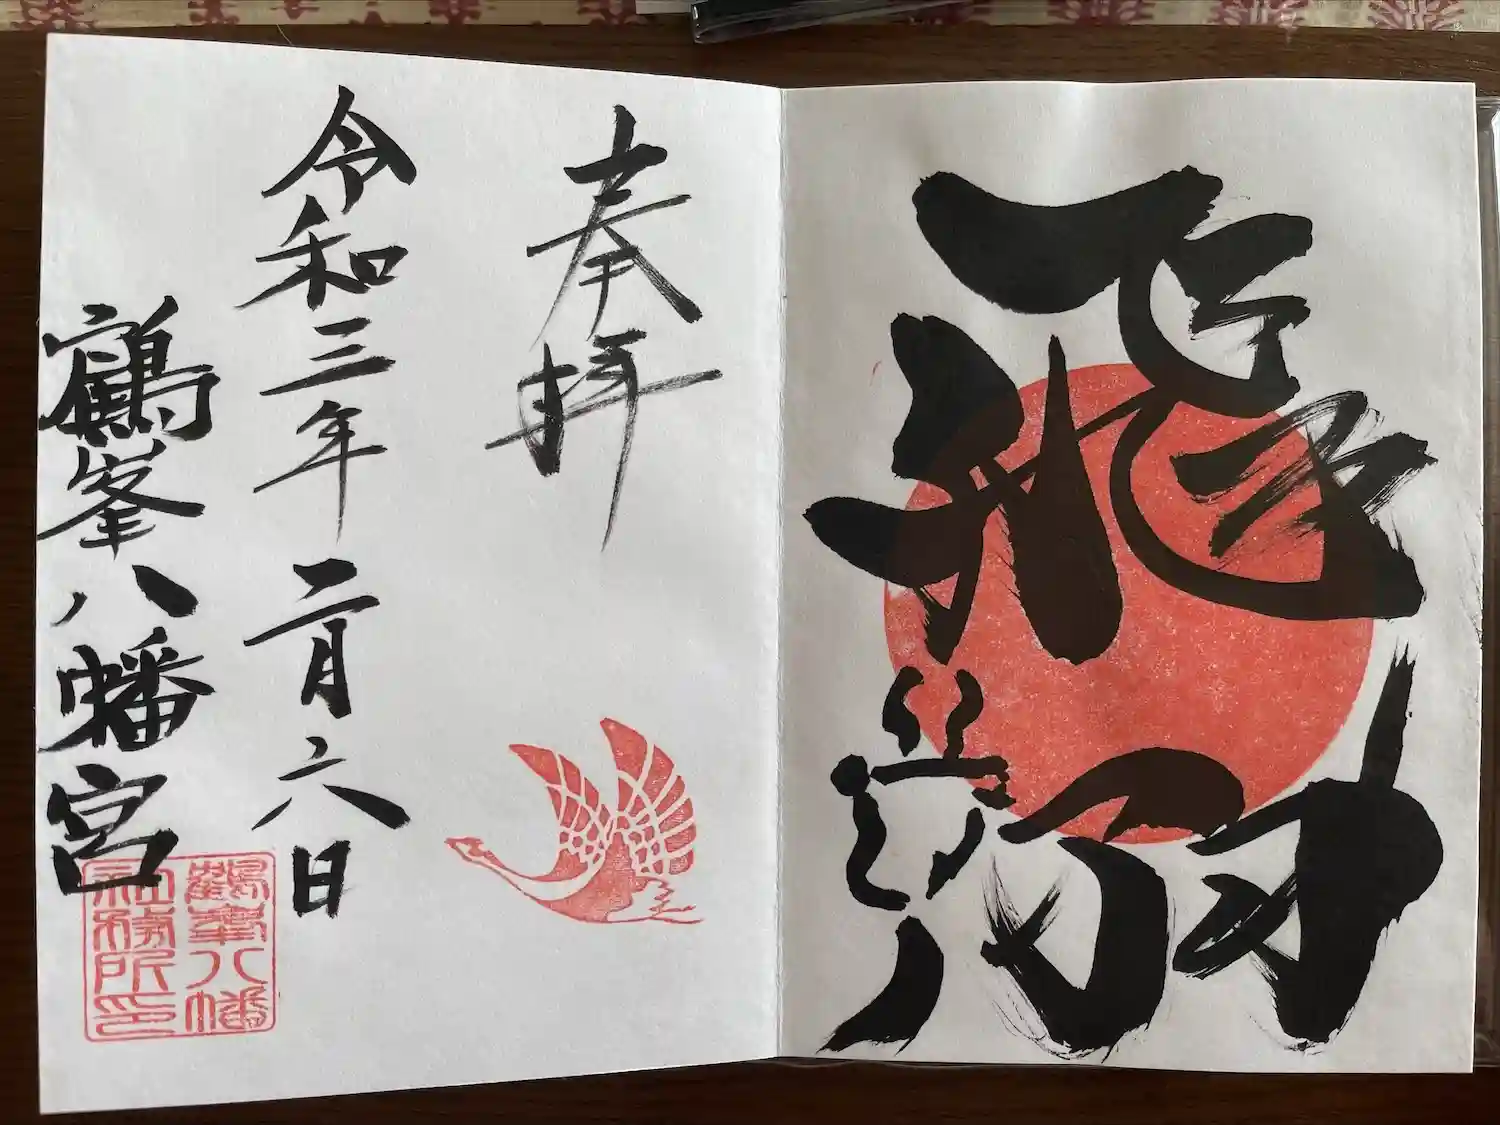 飛翔
奉拝
令和三年二月六日
鶴峯八幡宮
鶴峯八幡
社務所印